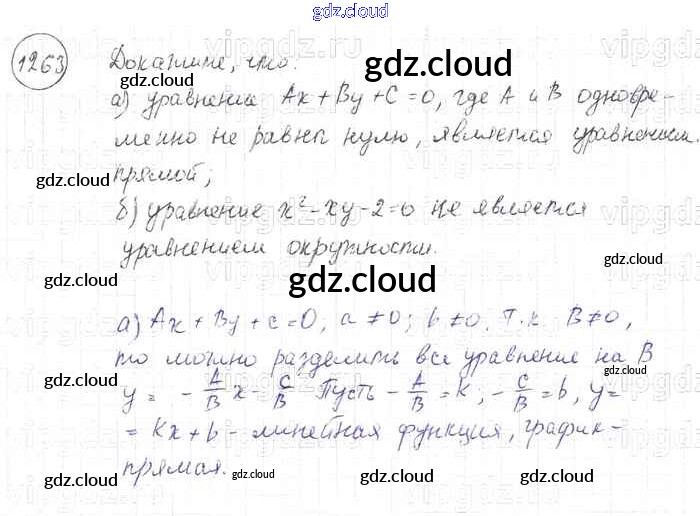 gdz.cloud
1263 Докажите, что:
gdz.cloud
а) уравнение Ax + By + C = 0, где A и B одновре-
менно не равна нулю, является уравнением
gdz.cloud
прямой;
gdz.cloud
б) уравнение x² - xy - 2 = 0 не является
уравнением окружности.
gdz.cloud
gdz.cloud
gdz.cloud
а) Ax + By + c = 0, a ≠ 0; b ≠ 0. Т.к. B ≠ 0,
то можно разделить все уравнение на B
gdz.cloud
gdz.cloud
y = - A/B x - C/B Пусть - A/B = k; - C/B = b, y =
= kx + b - линейная функция, график -
gdz.cloud
прямая.
gdz.cloud
gdz.cloud
gdz.cloud
gdz.cloud